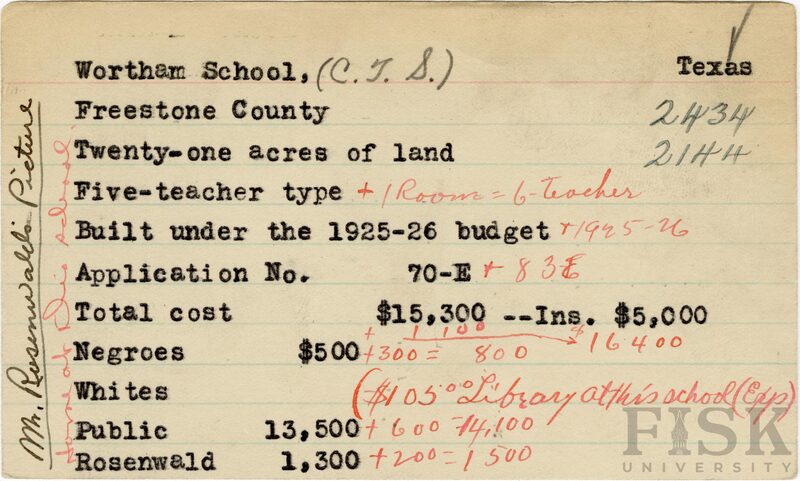 Wortham School, (C. T. S.) Texas
Freestone County 2434
Twenty-one acres of land 2144
Five-teacher type + 1 Room = 6-Teacher
Built under the 1925-26 budget + 1925-26
Application No. 70-E + 83E
Total cost $15,300 --Ins. $5,000
+ 1 100 $16400
Negroes $500 +300 = 800
Whites ($105.00 Library at this school (Exp)
Public 13,500 + 600 = 14,100
Rosenwald 1,300 + 200 = 1 500
Mr. Rosenwald's Picture
Home at this school
FISK
UNIVERSITY